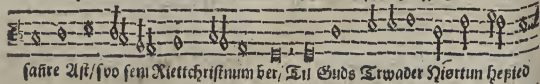 sañre Ast/svo sem Riettchristnum ber/ Til Guds Trwader Hiørtum hefied